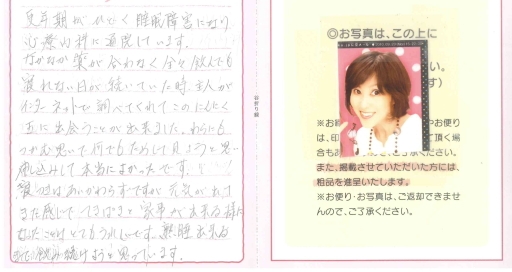 更年期がひどく睡眠障害になり
心療内科に通院しています。
なかなか薬が合わなく分々飲んでも
寝れない日が続いていた時、主人が
インターネットで調べてくれてこのにんにく
玉に出会うことが出来ました。わらにも
つかむ思いで何でもためして見ようと思い
申し込みして本当によかったです。
はあいかわらずですが元気が出て
きた感じで てきぱきと家事が出来る様に
なったことはとてもうれしいです。無理出来る
飲み続けようと思っています。
谷折り線
◎お写真は、この上に
い。
す)
※お
やお便り
は、印
て頂く場
合もお
ご了承ください。
また、掲載させていただいた方には、
粗品を進呈いたします。
※お便り・お写真は、ご返却できませ
んので、ご了承ください。